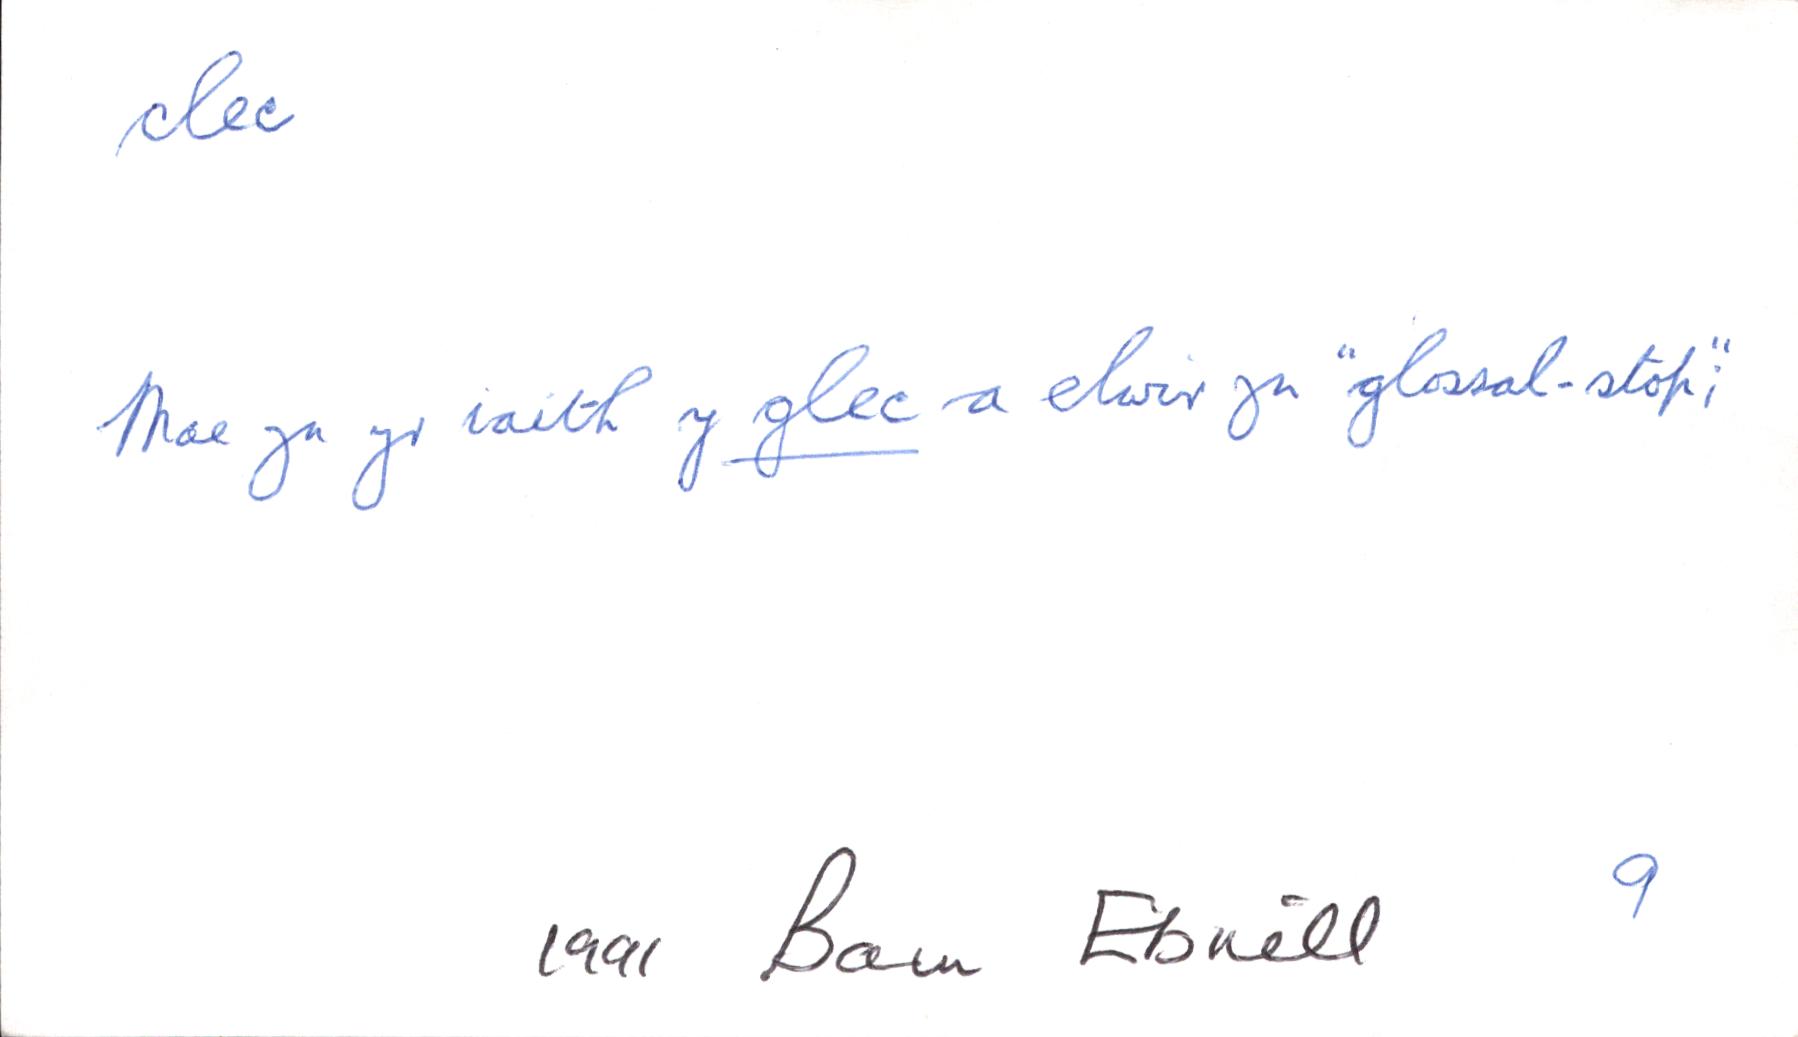 clec
Mae yn yr iaith y glec a elwir yn "glossal-stop;"
1991 Barn Ebrill 9